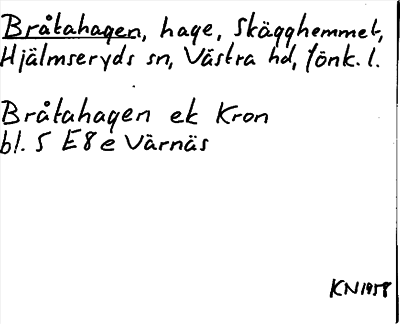 Bråtahagen, hage, Skägghemmet,
Hjälmseryds sn, Västra hd, Jönk. l.
Bråtahagen ek Kron
bl. 5 E8e Värnäs
KN1958